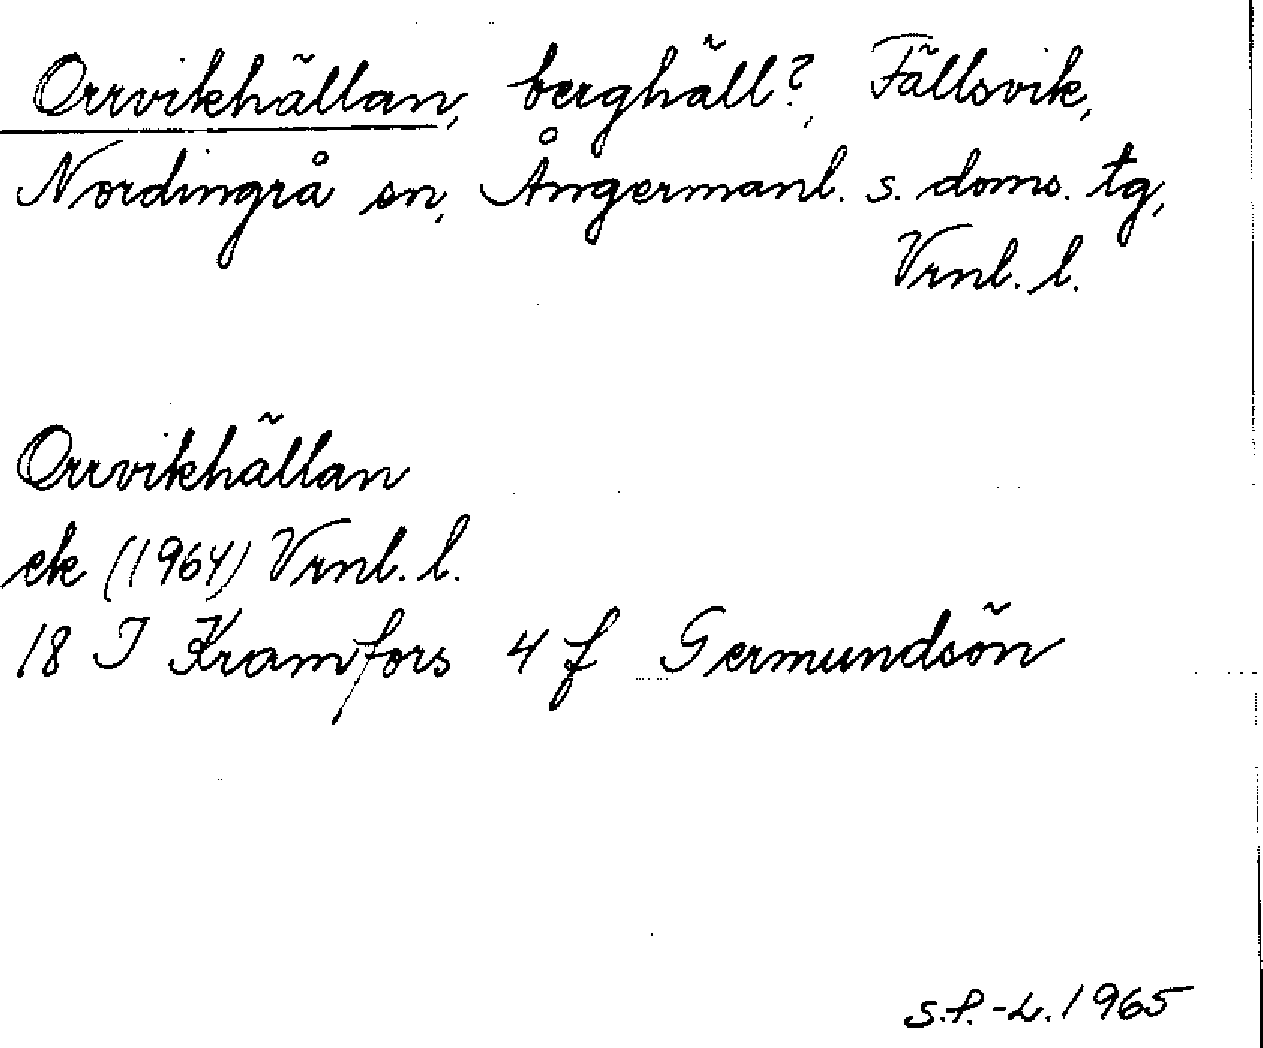 Orrvikhällan, berghäll?, Fällsvik,
Nordingrå sn, Ångermanl. s. doms. tg,
Vrnl. l.
Orrvikhällan
ek (1964) Vrnl. l.
18 I Kramfors 4 f Germundsön
S.P.-L. 1965